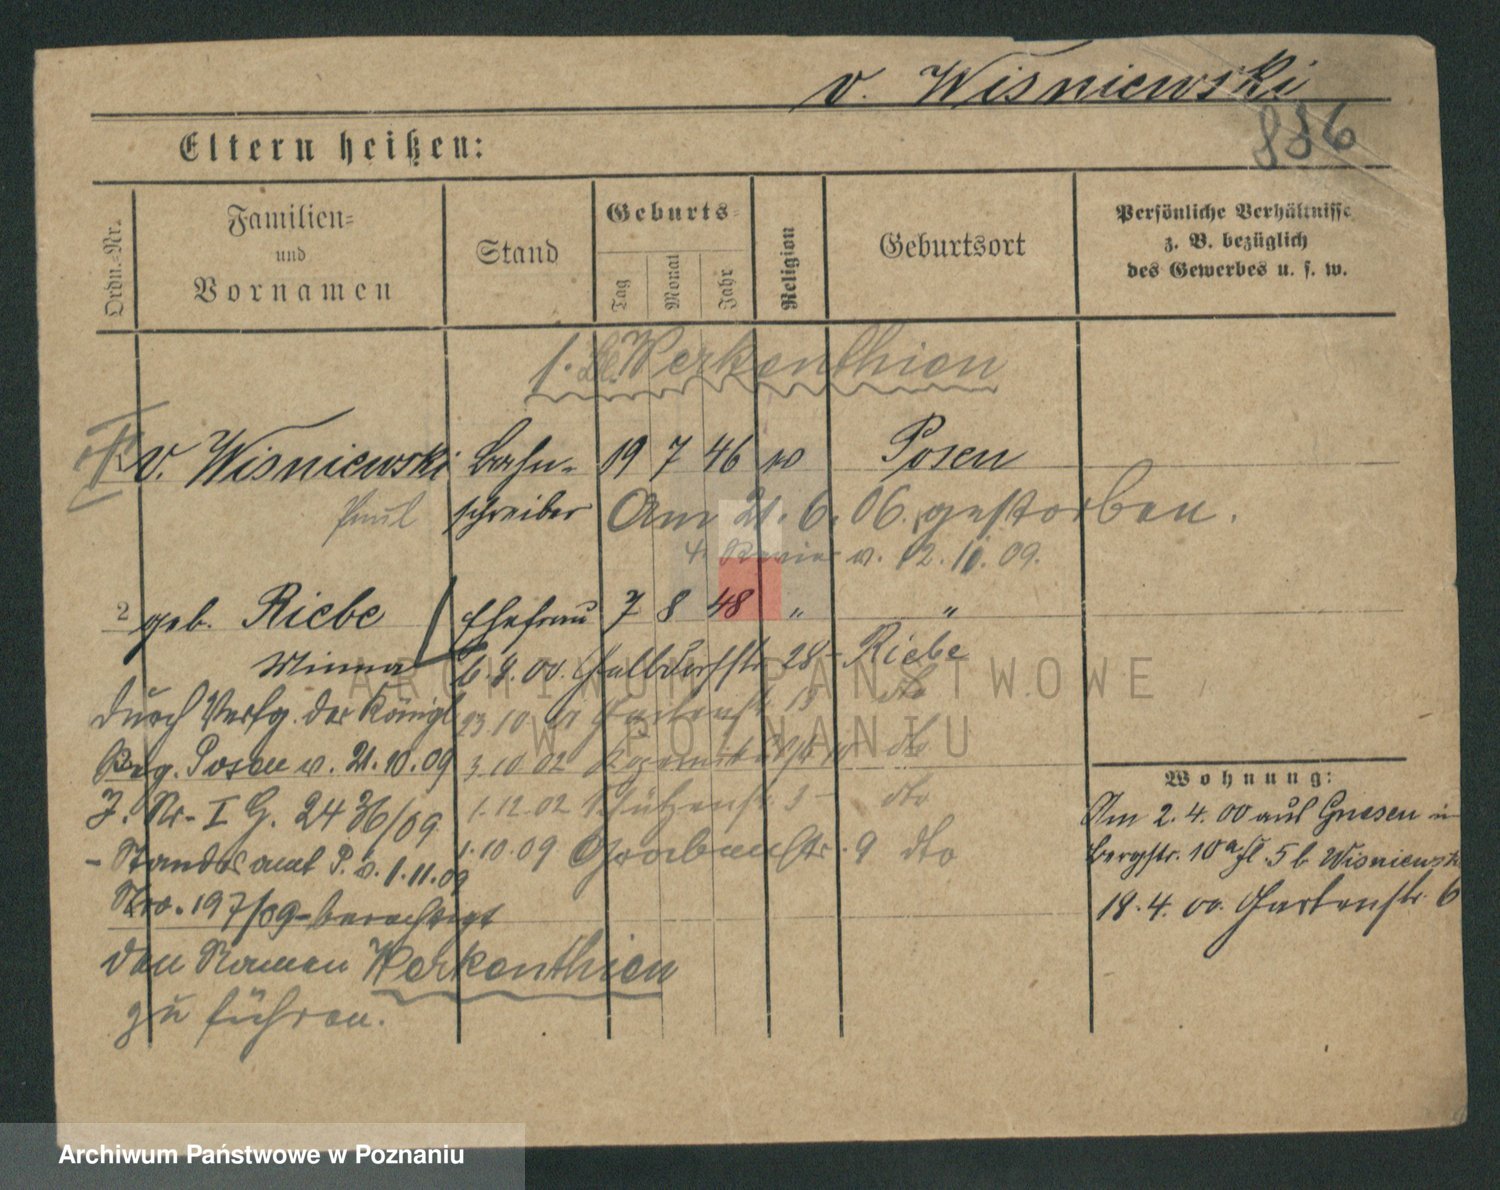 v. Wisniewski
886
Eltern heißen:
Ordn.-Nr.
Familien-
und
Vornamen
Stand
Geburts-
Tag
Monat
Jahr
Religion
Geburtsort
Persönliche Verhältnisse
z. B. bezüglich
des Gewerbes u. s. w.
Werkenthien
v. Wisniewski Bahn- 19 7 46 Posen
Paul schreiber Am 21. 6. 06. gestorben.
4. Revier v. 12. 11. 09.
2 geb. Riebe Ehefrau 7 8 48 " "
Minna 6. 8. 00 Halbdorfstr 28 - Riebe
durch Verfg. der Königl 23 10 01 Gartenstr 13 dto
Reg. Posen v. 21. 10. 09 3. 10. 02 dto
J. Nr. I G. 2436/09 1. 12. 02 Schützenstr. 3 - dto
- Standesamt P. v. 1. 11. 09 1. 10. 09 Grabenstr. 9 dto
Nro. 197/09 - berechtigt
den Namen Werkenthien
zu führen.
Wohnung:
Am 2. 4. 00 aus Gnesen in
Bergstr. 10a fl. 5 b Wisniewski
18. 4. 00. Gartenstr. 6
ARCHIWUM PAŃSTWOWE
W POZNANIU
Archiwum Państwowe w Poznaniu